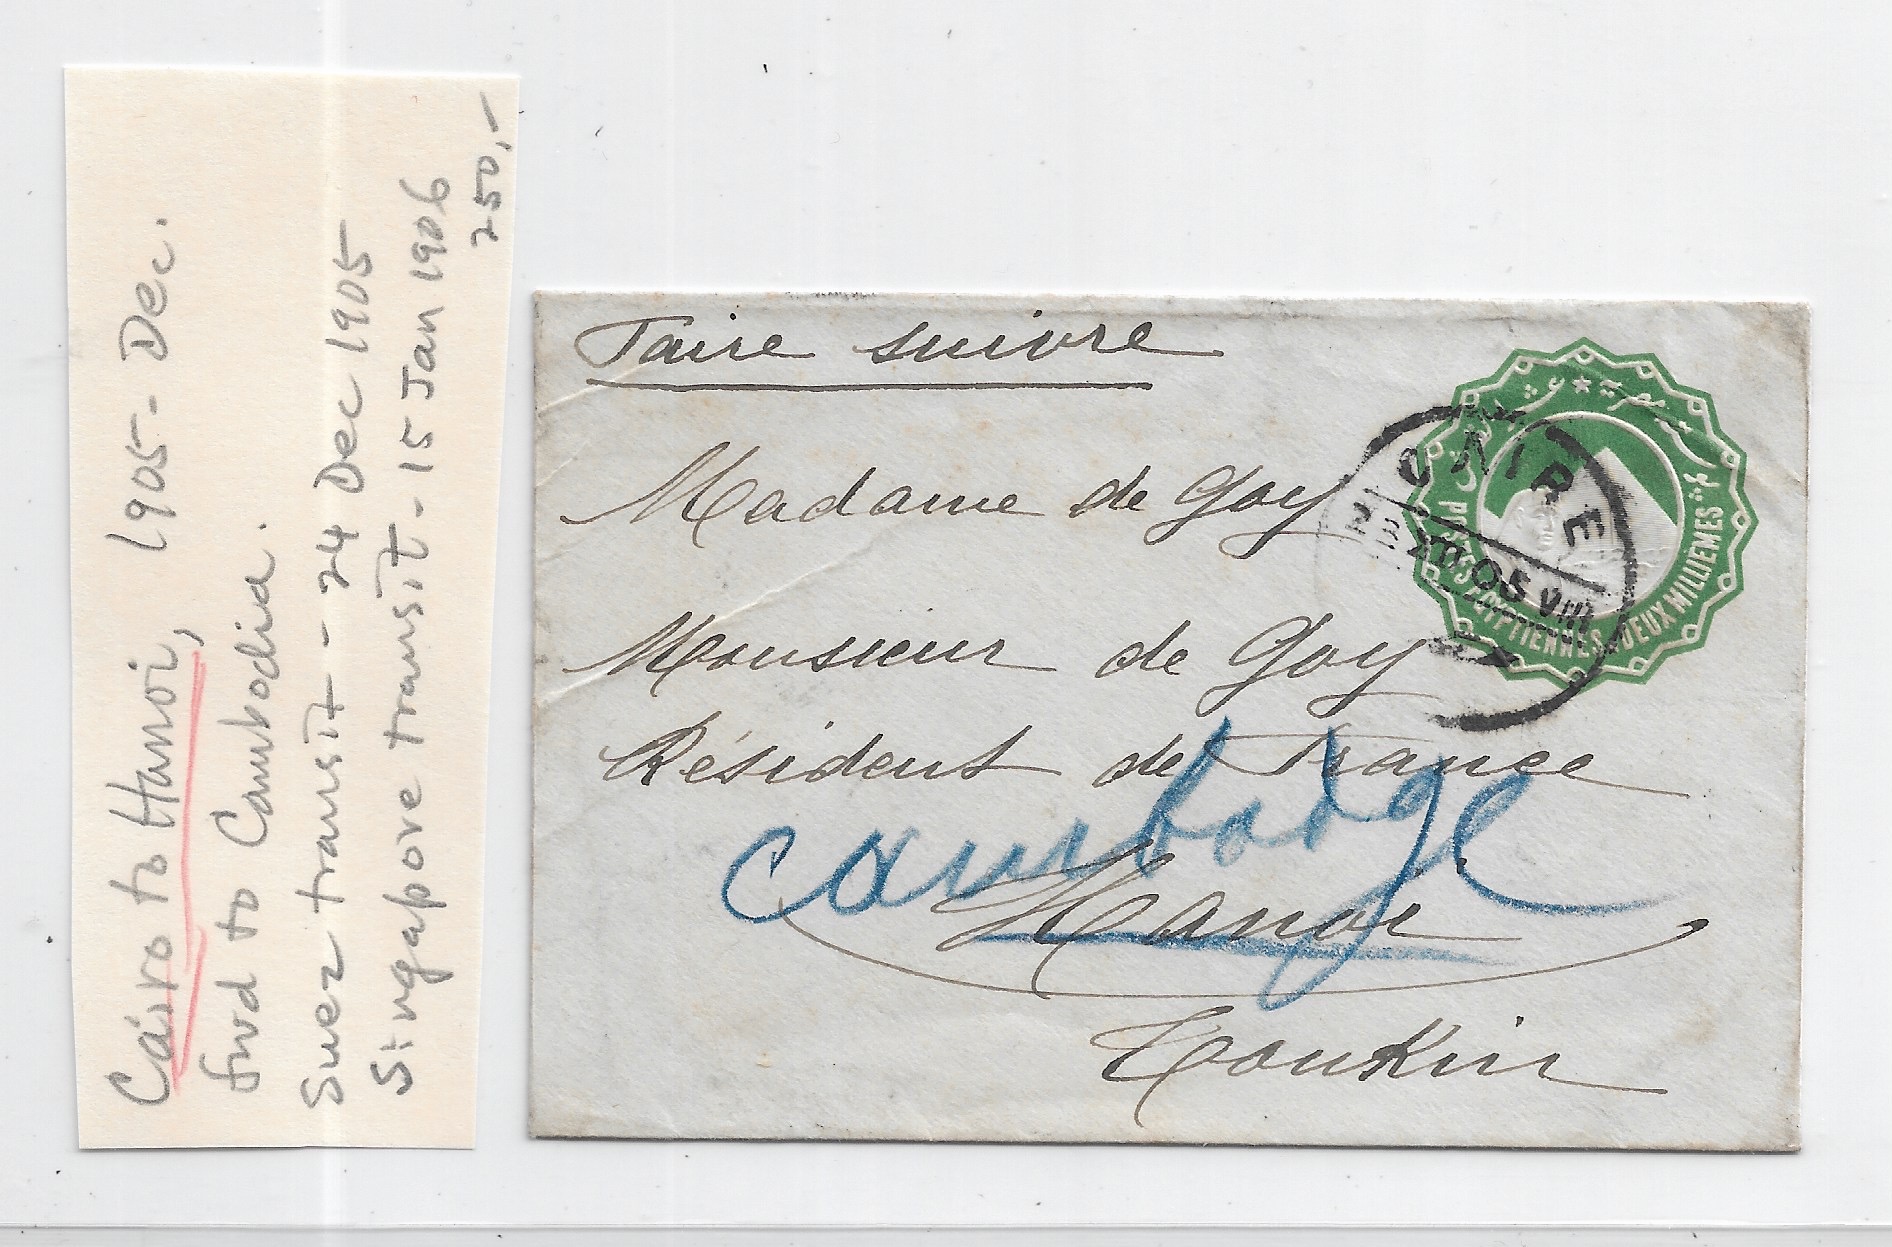 Cairo to Hanoi, 1905-Dec.
fwd to Cambodia.
Suez transit - 24 Dec 1905
Singapore transit - 15 Jan 1906
250,-
Faire suivre
Madame de Goy
Monsieur de Goy
Résident de France
Cambodge
Hanoi
Tonkin
CAIRE
05 VIII
POSTES EGYPTIENNES DEUX MILLIEMES